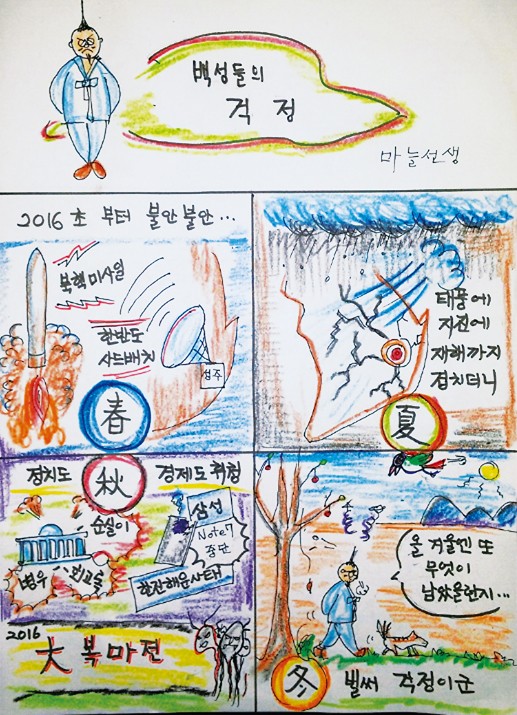 백성들의
걱정
마늘선생
2016 초 부터 불안불안...
북핵미사일
한반도
사드배치
성주
春
태풍에
지진에
재해까지
겹치더니
夏
정치도
秋
경제도 위험
순실이
병우
최고들
삼성
Note7
중단
한진해운사태
2016
大복마전
올 겨울엔 또
무엇이
남았을런지...
冬
벌써 걱정이군